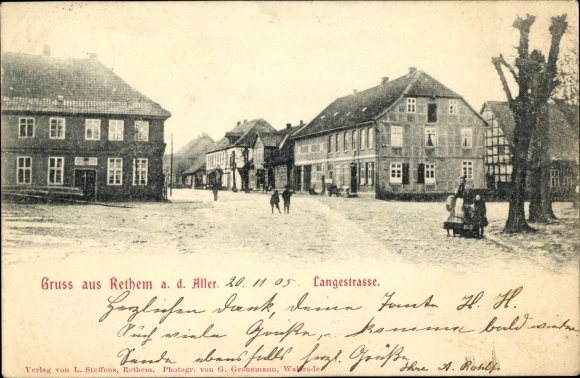 Gruss aus Rethem a. d. Aller. 20.11.05. Langestrasse.
Herzlichen Dank, deine Tante H. H.
Auch viele Grüße, komme bald wieder
Sende ebenfalls herzl. Grüße
Ihre A. Rohlfs.
Verlag von L. Steffens, Rethem. Photogr. von G. Gronemann, Walsrode.